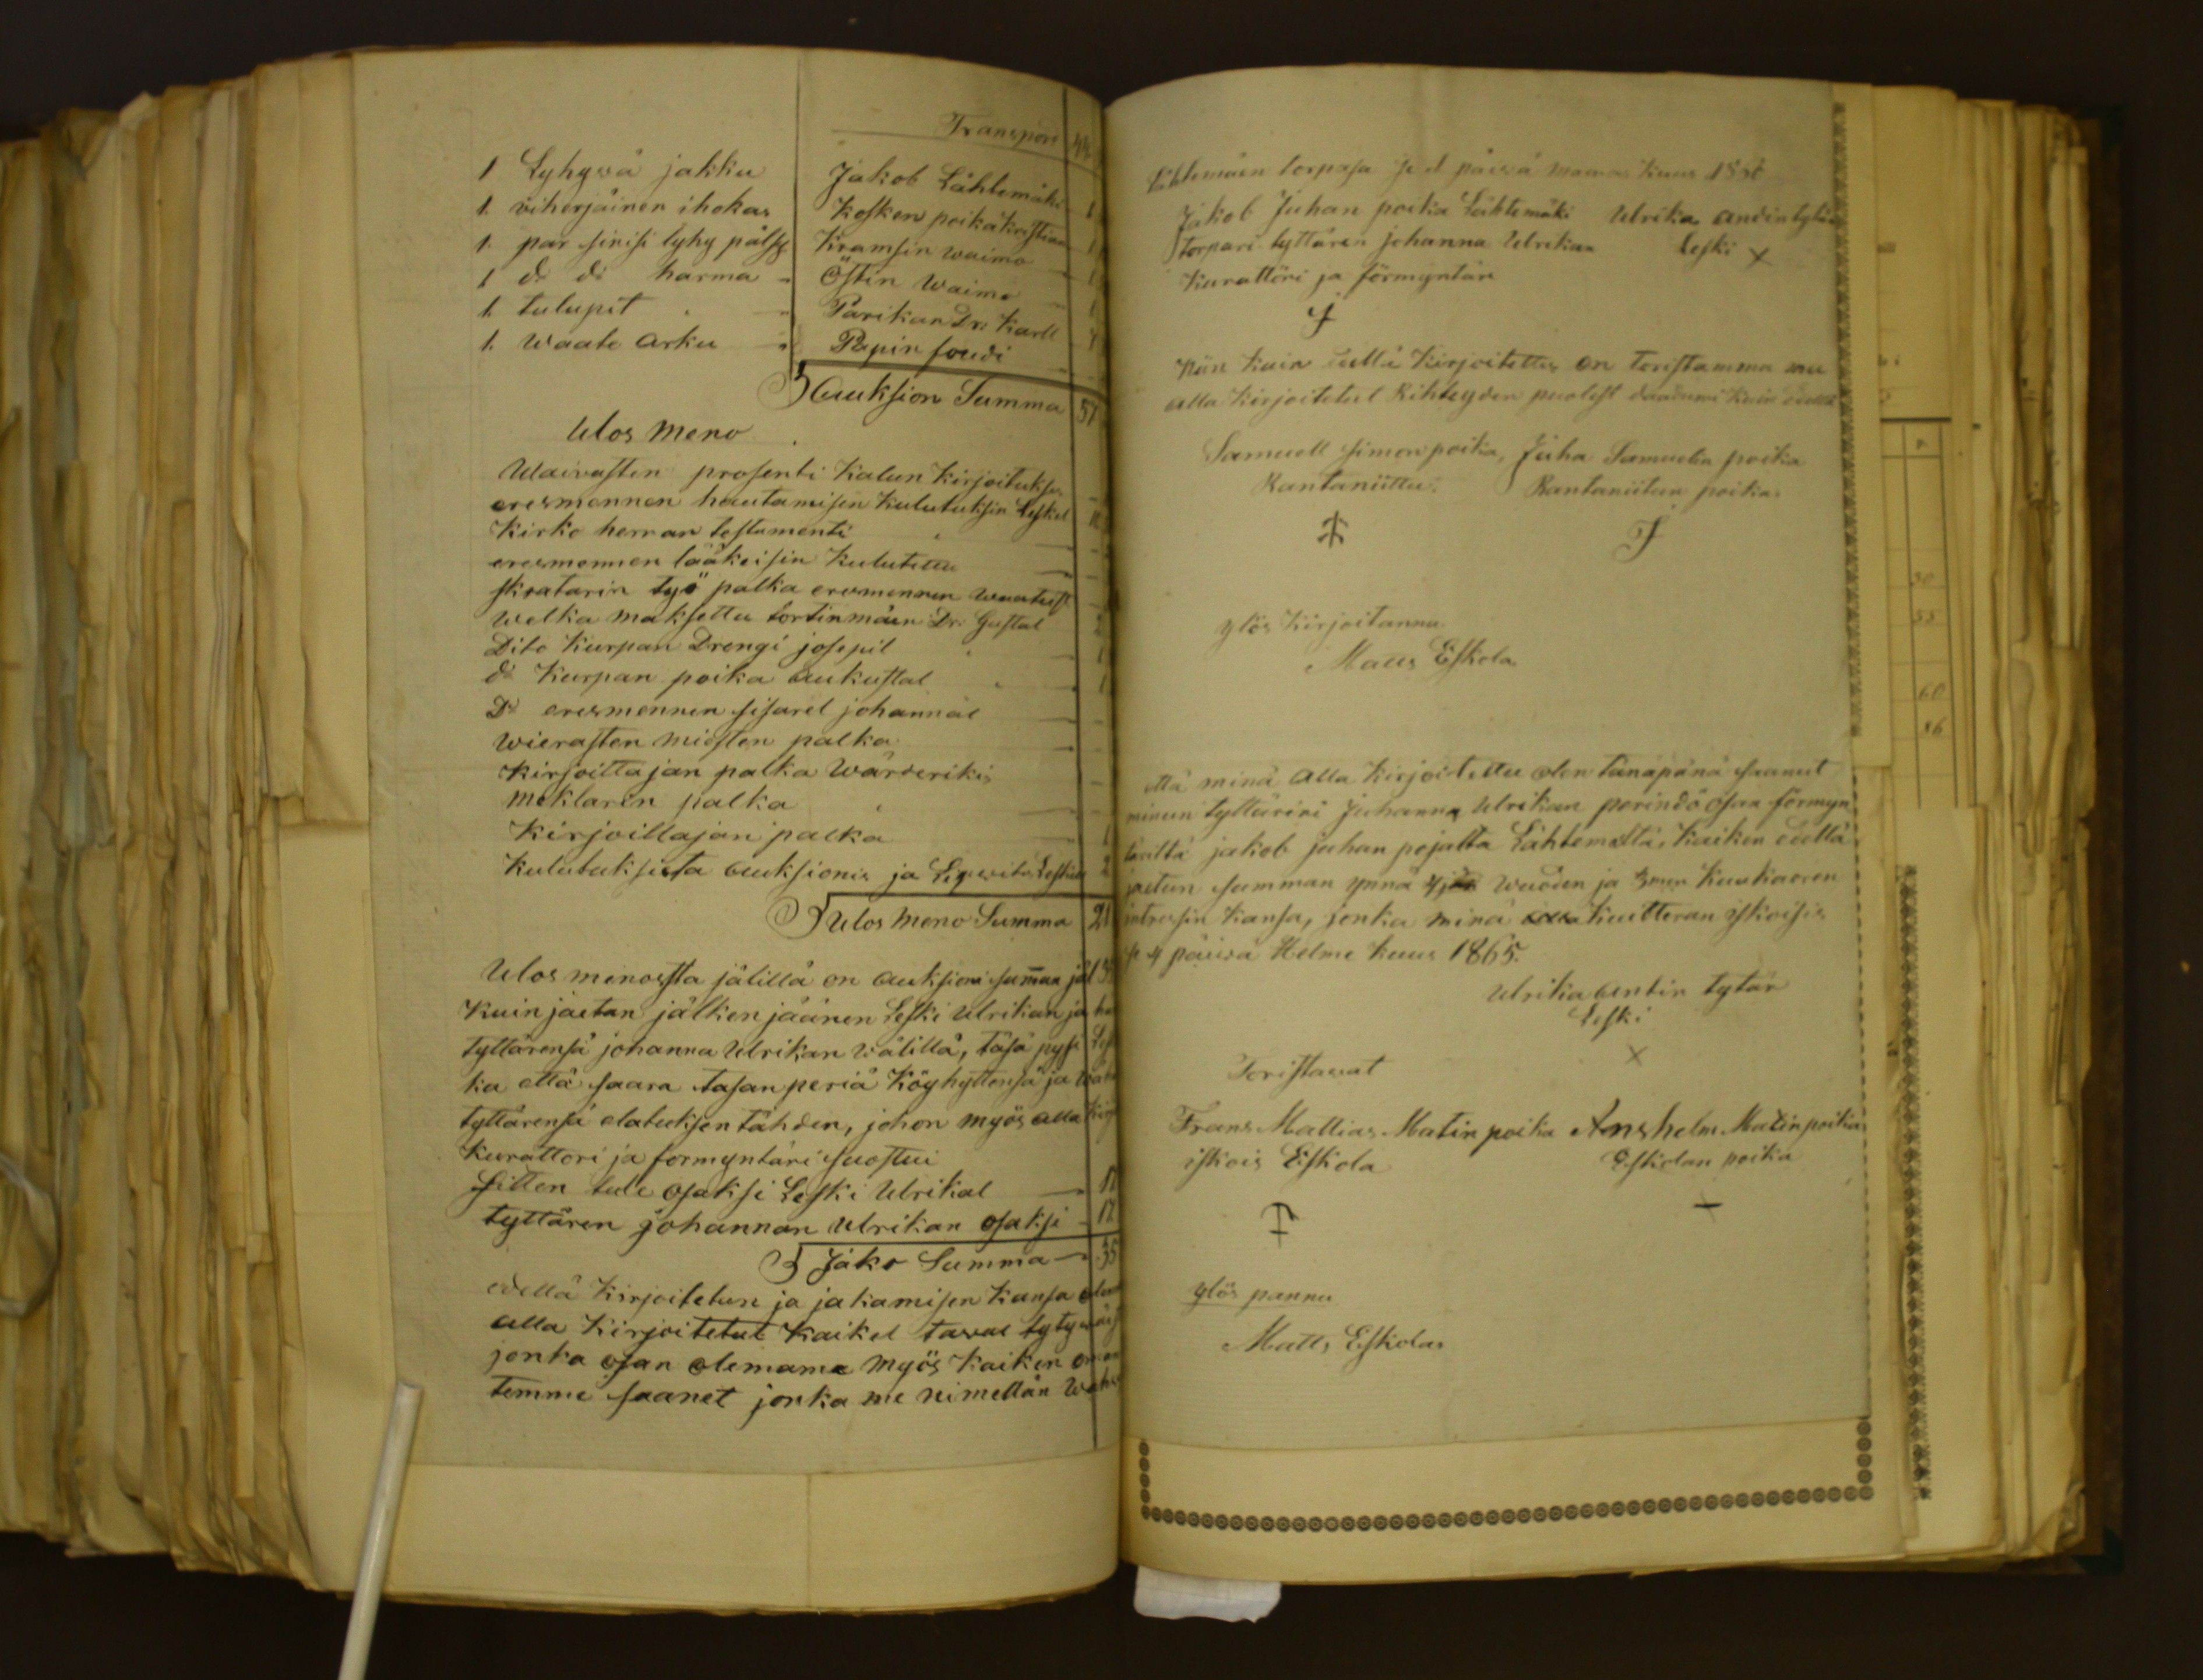 Transport 44
1 Lyhywä jakku Jakob Lähtemäki 1
1. viherjäinen ihokas Kosken poika kristian 1
1. par sinisi lyhy pälsy Kramsin waimo 1
1 do do harma Östin waimo 1
1. tulupit Parikan Dr: Karll
1. waate arku Papin foudi
Auksion Summa 57
Ulos meno
Waivasten prosenti kalun kirjoitukses
eresmennen hautamisen kulutuksin Leskel
Kirko herran testamenti
eresmennen lääkeisin kulutettu
skratarin työ palka eresmennen waateist
welka maksettu tortinmäen Dr: Gustal 2
Dito Kurpan Drengi josepil 1
do Kurpan poika aukustal 1
Do eresmennen sisarel johannal
wierasten miesten palka
kirjoittajan palka wärderikis
meklarin palka
kirjoittajan palka 1
kulutuksista auksionis ja Leskin 2
Ulos meno Summa 21
Ulos menoista jälillä on auksioni summa jäl
kuin jaetan jälken jäänen Leski Ulrikan ja
tyttärensä johanna Ulrikan wälillä, täsä pysi Les
ka että saara tasan periä köyhyttensä ja
tyttärensä elatuksen tähden, johon myös alla kirj
kurattori ja formyntäri suostui
sitten tule osaksi Leski Ulrikal
tyttären johannan Ulrikan osaksi
Jako Summa 35
edellä kirjoitetun ja jakamisen kansa olem
alla kirjoitetut kaikel tawal tytywäis
jonka osan olemame myös kaiken oman
temme saanet jonka me nimellän wahw
Lähtemäen torpasa se päiwä kuus
Jakob Juhan poika Lähtemäki Ulrika andin tytär
torpari tyttären johanna Ulrikan Leski X
kurattöri ja förmyntäri
niin kuin kirjoitettu on toristamma me
alla kirjoitetut Rihteyden puolest kuin edellä
Samuell Simon poika, Juha Samuelin poika
Rantaniittu. Rantaniitun poika
ylös kirjoitannu
Matts Eskola
että minä alla kirjoitettu olen tänäpänä saanut
minun tyttärini Juhanna Ulrikan perindö osan förmyn
täriltä jakob juhan pojalta Lähtemältä, kaiken edellä
jaetun summan ynnä wuoden ja kuukauden
intressin kansa, jonka minä kuitteran iskoisis
se 4 päiwä Helme kuus 1865.
Ulrika antin tytär
Leski
X
Toristawat
Frans Mattias Matin poika Anshelm Matin poika
iskois Eskola Eskolan poika
ylös pannu
Matts Eskola
30
55
60
86